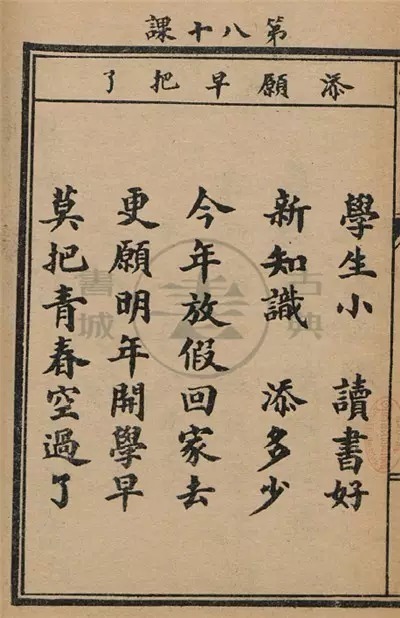 第八十課
添願早把了
學生小 讀書好
新知識 添多少
今年放假回家去
更願明年開學早
莫把青春空過了
古典
書城